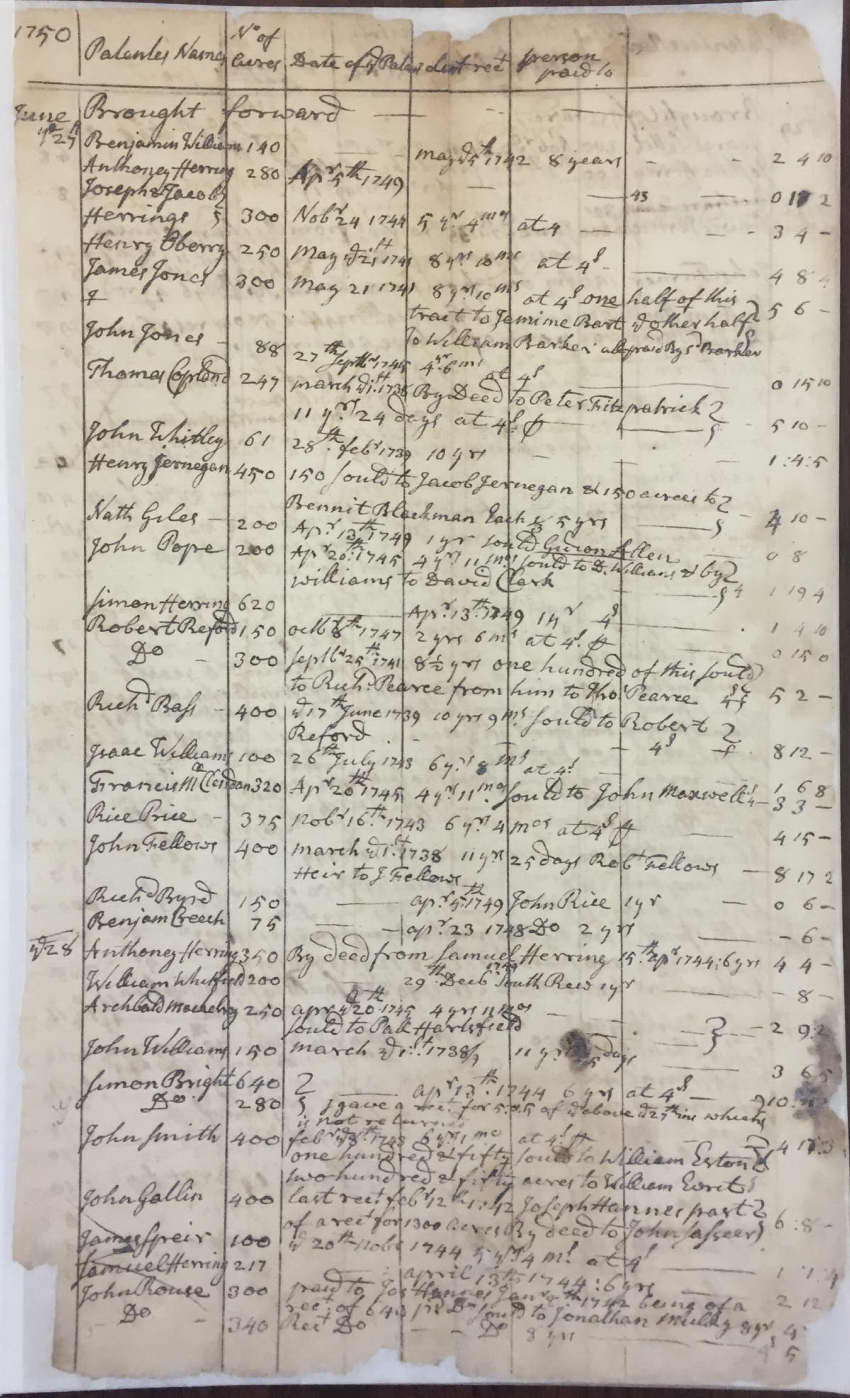 1750 Patentes Names No of acres Date of ye Patent last rect person paid to
June Brought forward
ye 25th
Benjamin William 140 may ye 5th 1742 8 years 2 4 10
Anthoney Herring 280 Apr 5th 1749 0 17 2
Joseph & Jacob
Herrings 300 Nobr 24 1744 5 yr 4 mos at 4 3 4
Henry Oberry 250 May ye 21st 1741 8 yrs 10 ms at 4s 4 8
James Jones 300 may 21 1741 8 yrs 10 ms at 4s one half of this 5 6
tract to Jemime Bart & other half
to William Barker all paid By sd Barker
John Jones 88 27th Septbr 1745 4 yr 6 ms at 4s 0 15 10
Thomas 247 march ye 1st 1736 By Deed to Peter Fitzpatrick
11 yrs 24 days at 4s 5 10
John Whitley 61 28th febr 1739 10 yrs 1:4:5
Henry Jernegan 450 150 sould to Jacob Jernegan & 150 acrees to
Bennit Blackman Each 5 yrs 10
Nath Giles 200 Apr 13th 1749 1 yr sould Allen 0 8
John Pope 200 Apr 20th 1745 4 yr 11 ms sould to D. Williams & by
williams to David Clark 1 19 4
Simon Herring 620 Apr 13th 1749 1 yr 4s 1 4 10
Robert Reford 150 octbr 8th 1747 2 yrs 6 ms at 4s 0 15 0
Do 300 Septbr 25th 1741 8½ yrs one hundred of this sould
to Richd Pearce from him to Thos Pearce 5 2
Richd Bass 400 ye 17th June 1739 10 yrs 9 ms sould to Robert
Reford 4s 8 12
Isaac Williams 100 26th July 1743 6 yrs 8 ms at 4s 1 6 8
Francis McClendon 320 Apr 20th 1745 4 yr 11 mos sould to John Maxwell 3 3
Rice Price 375 Nobr 16th 1743 6 yrs 4 mos at 4s 4 15
John Fellows 400 march ye 1st 1738 11 yrs 25 days Robt Fellows
Heir to J Fellows 8 17 2
Richd Byrd 150 apr 5th 1749 John Rice 1 yr 0 6
Benjam Creech 75 apr 23 1748 Do 2 yrs 6
ye 28 Anthoney Herring 350 By deed from Samuel Herring 15th apr 1744: 6 yrs 4 4
William Whitfield 200 29th Decbr South Rew 1 yr 8
Archbald 250 apr ye 20th 1745 4 yrs 11 mos
sould to Pall Hartsfield 2 9 2
John Williams 150 march ye 1st 1738/9 11 yrs 25 days 3 6 5
Simon Bright 640 apr 13th 1744 6 yrs at 4s 10
Do 280 I gave a rect for of ye above ye 27th ins which
is not returned
John Smith 400 febr 1743 6 yrs 1 mo at 4s 4
one hundred & fifty sould to William Eston &
two hundred & fifty acres to William
John Gallin 400 last rect febr 12th Joseph Hannes part
of a rect for 1300 acres By deed to John Sasseer 6:8
James Speir 100 ye 20th Nobr 1744 5 yrs 4 ms at 4s
Samuel Herring 217 april 13th 1744: 6 yrs
John Rouse 300 paid to Jos Hannes Janr 1742 being of a 2 12
rect of 640 Do sould to Jonathan 8 yr
Do 340 Rect Do Do 8 yrs 5